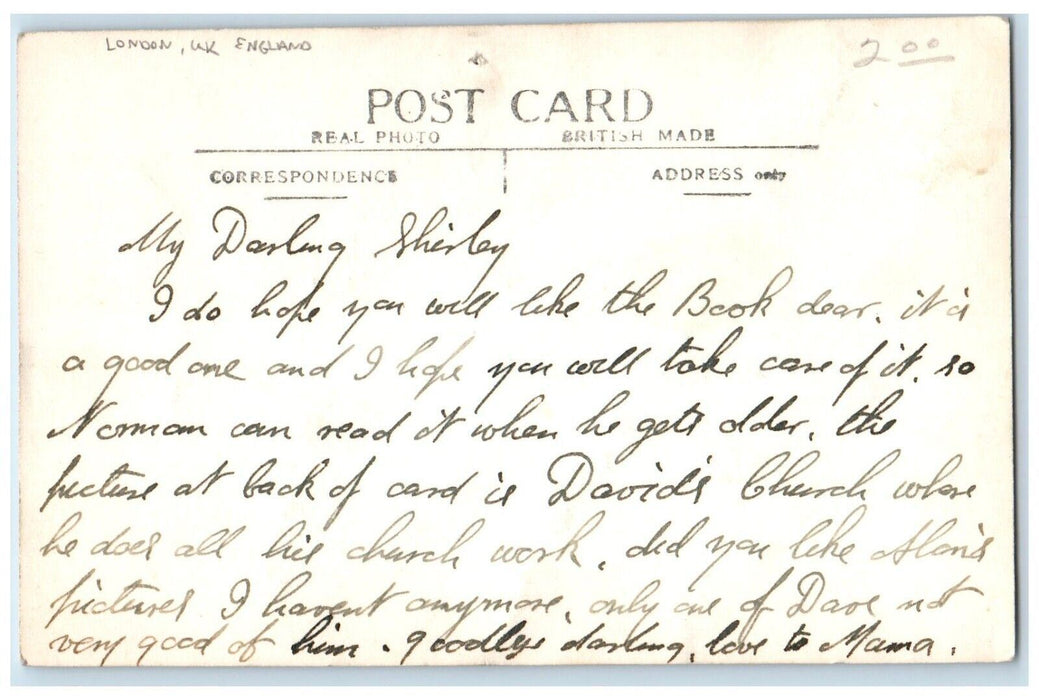 LONDON, UK ENGLAND
2.00
POST CARD
REAL PHOTO BRITISH MADE
CORRESPONDENCE ADDRESS only
My Darling Shirley
I do hope you will like the Book dear. it is
a good one and I hope you will take care of it. so
Norman can read it when he gets older. the
picture at back of card is David's Church where
he does all his church work. did you like Alan's
pictures I havent anymore. only one of Dave not
very good of him. goodbye darling. love to Mama.